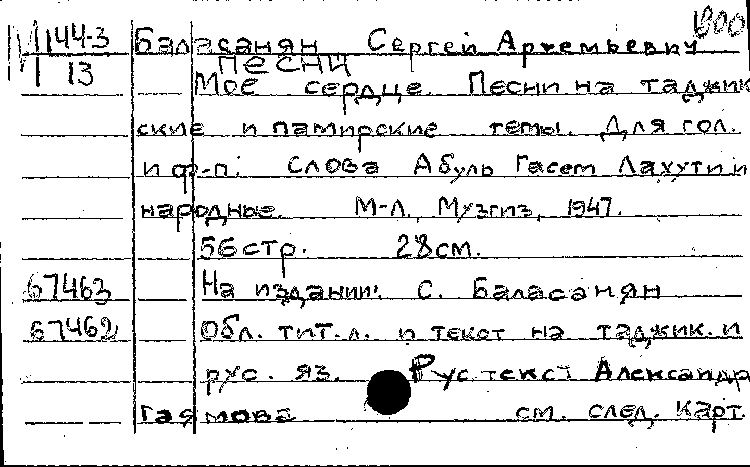 1800
М 144-3 Баласанян Сергей Артемьевич
13 Песни
Мое сердце. Песни на таджик
ские и памирские темы. Для гол.
и ф-п. Слова Абуль Гасем Лахути и
народные. М-Л., Музгиз, 1947.
56 стр. 28 см.
67463 На издании: С. Баласанян
67462 Обл. тит. л. и текст на таджик. и
рус. яз. Рус. текст Александр
см. след. карт.